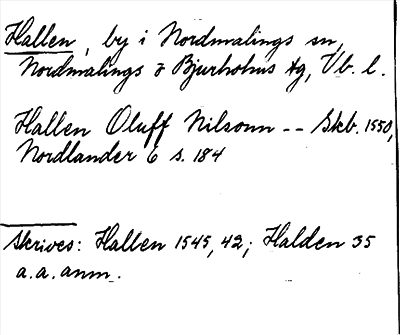 Hallen, by i Nordmalings sn,
Nordmalings o Bjurholms tg, Vb. l.
Hallen Oluff Nilsonn -- Skb. 1550,
Nordlander 6 s. 184
Skrives: Hallen 1545, 42; Halden 35
a.a. anm.